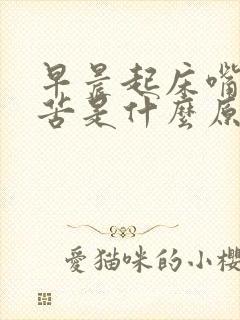 早晨起床嘴
苦是什麼原
愛猫咪的小櫻